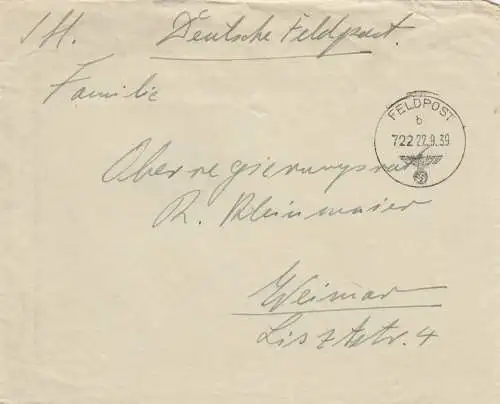 Deutsche Feldpost.
Familie
FELDPOST
b
722 22.9.39
Oberregierungsrat
R. Kleinmaier
Weimar
Lisztstr. 4